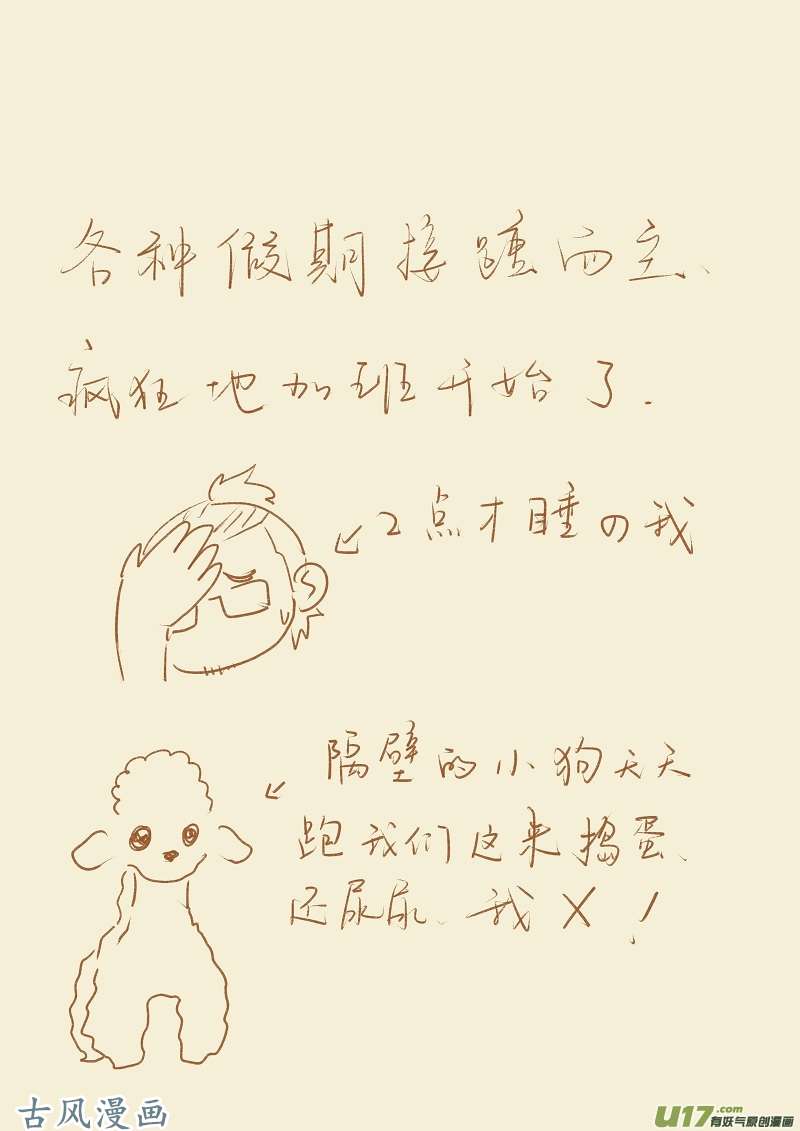 各种假期接踵而至、
疯狂地加班开始了.
2点才睡の我
隔壁的小狗天天
跑我们这来捣蛋、
还尿尿、我X!
古风漫画
U17.com
有妖气原创漫画